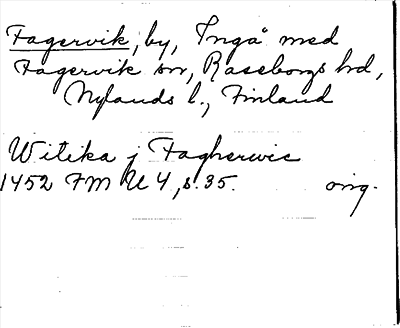 Fagervik, by, Ingå med
Fagervik sn, Raseborgs hd,
Nylands l., Finland
Witika j Fagherwic
1452 FMU 4, s. 35. orig.